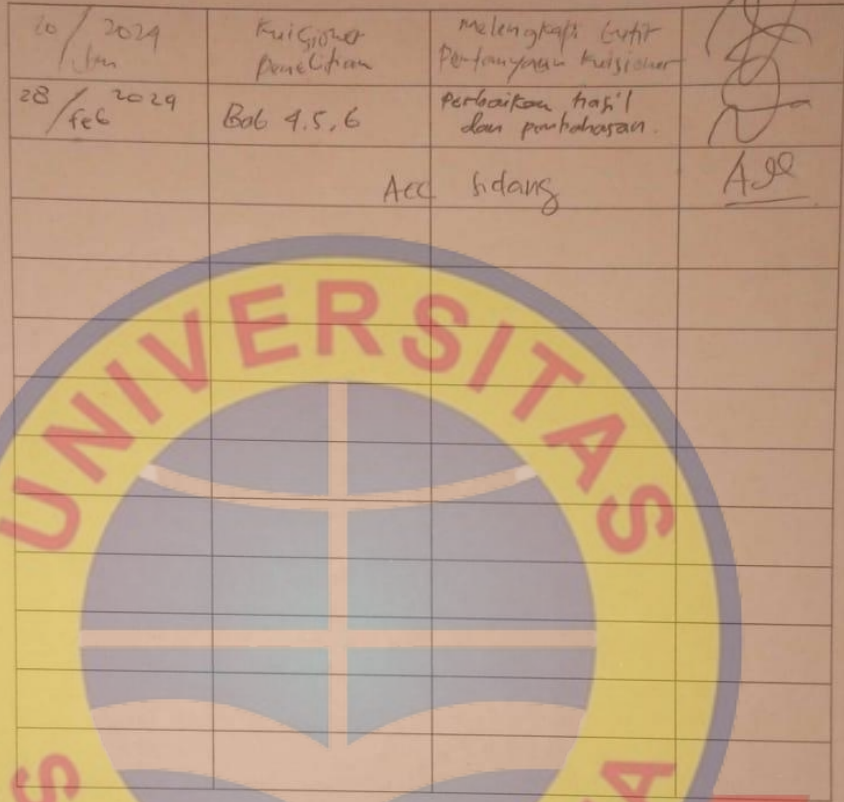 20/Jan 2024
Kuisioner
Penelitian
Melengkapi butir
Pertanyaan kuisioner
28/Feb 2024
Bab 4.5.6
Perbaikan hasil
dan pembahasan.
Acc Sidang
UNIVERSITAS
S
A